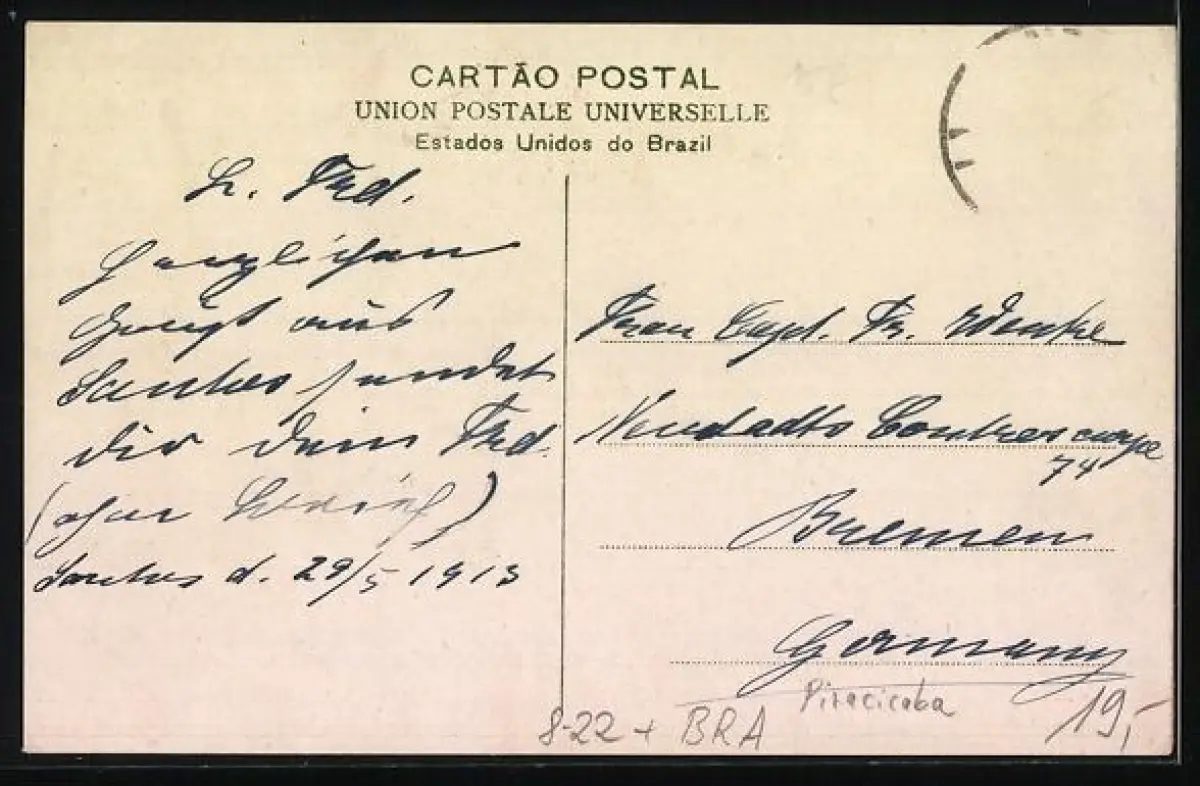 CARTÃO POSTAL
UNION POSTALE UNIVERSELLE
Estados Unidos do Brazil
L. Frd.
Herzlichen
Gruß aus
Santos sendet
dir dein Frd.
Santos d. 29/5 1913
Frau Capt. Fr.
Neustadts Contrescarpe
74
Bremen
Germany
Piracicaba
8-22 + BRA
19,-